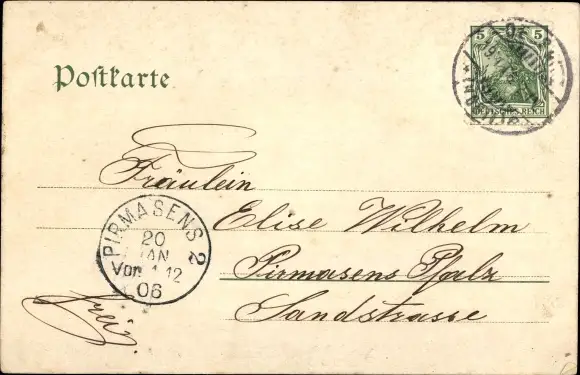 5 5
DEUTSCHES REICH
Postkarte
Fräulein
Elise Wilhelm
Pirmasens Pfalz
Sandstrasse
frei.
PIRMASENS 2
20
JAN
Vor 11-12
06